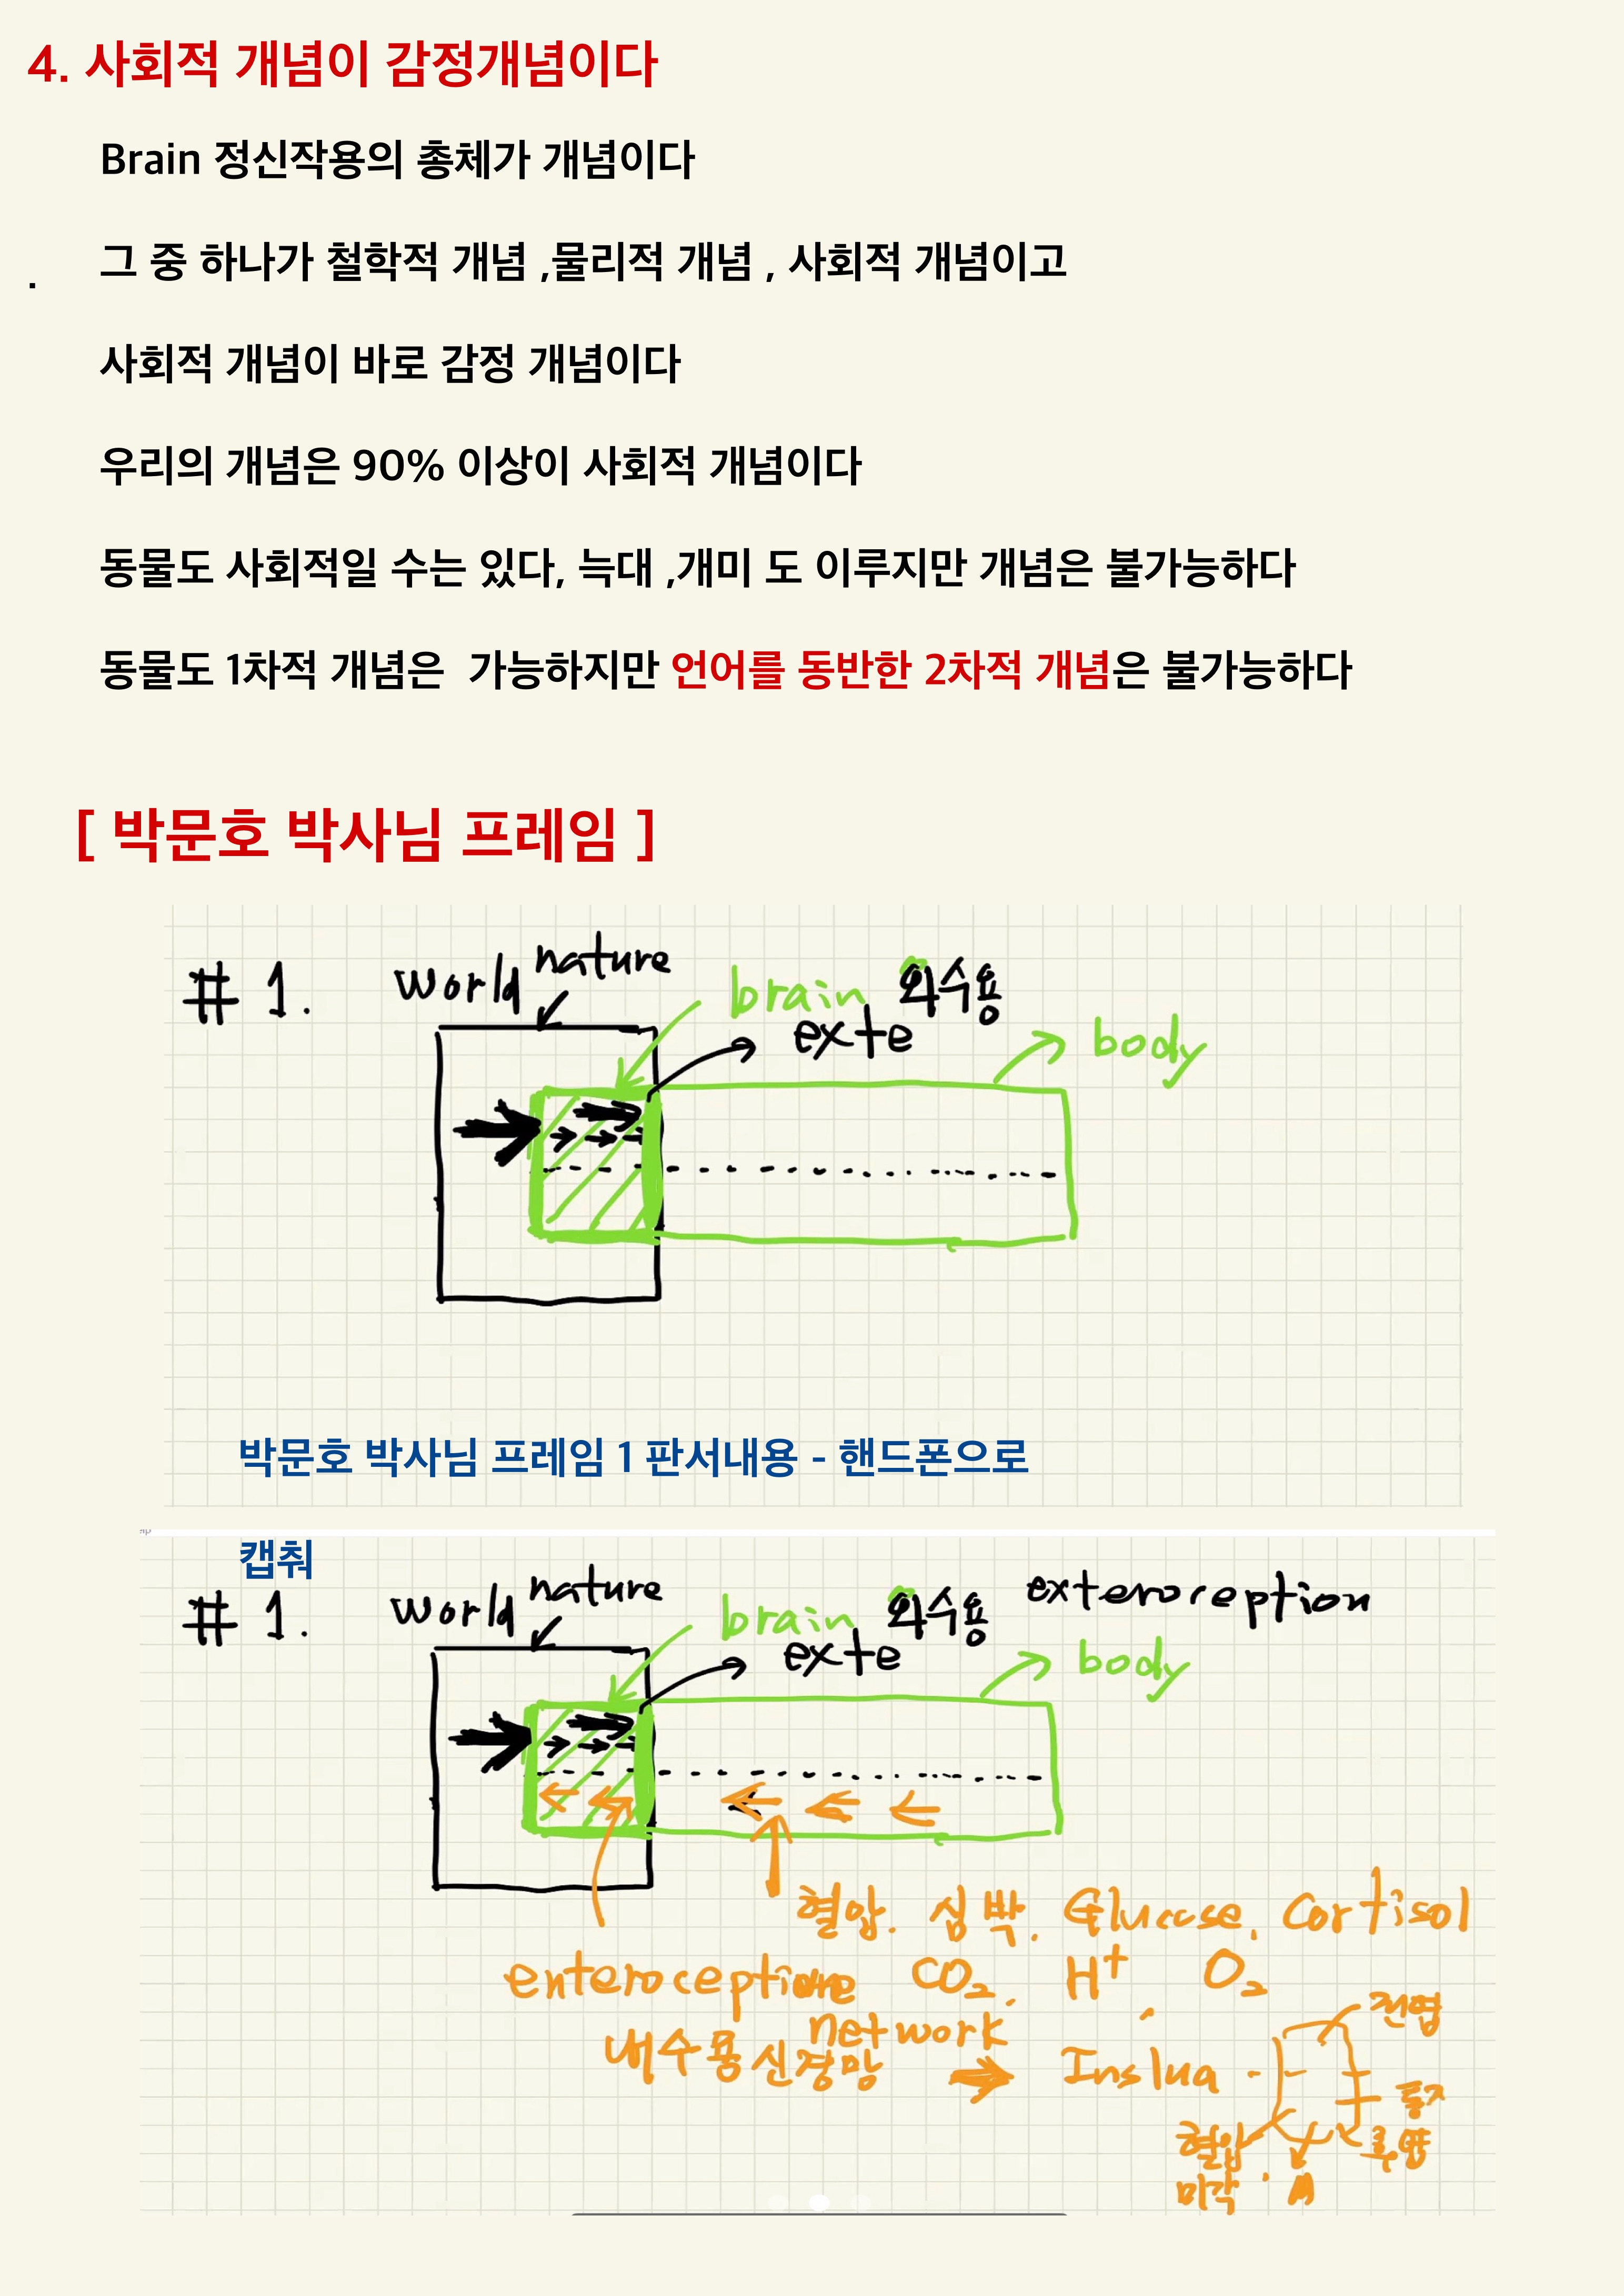 4. 사회적 개념이 감정개념이다
Brain 정신작용의 총체가 개념이다
그 중 하나가 철학적 개념 ,물리적 개념 , 사회적 개념이고
.
사회적 개념이 바로 감정 개념이다
우리의 개념은 90% 이상이 사회적 개념이다
동물도 사회적일 수는 있다, 늑대 ,개미 도 이루지만 개념은 불가능하다
동물도 1차적 개념은 가능하지만 언어를 동반한 2차적 개념은 불가능하다
[ 박문호 박사님 프레임 ]
# 1. world nature brain 외수용
exte body
박문호 박사님 프레임 1 판서내용 - 핸드폰으로
캡춰
# 1. world nature brain 외수용 exteroreption
exte body
혈압. 심박. Glucose. Cortisol
enteroception CO2. H+ O2
network
내수용신경망 Inslua
전엽
혈압
미각